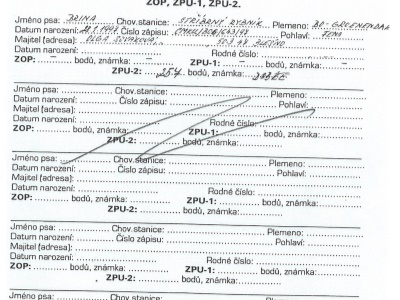 ZOP, ZPU-1, ZPU-2.
Jméno psa: BRINA Chov.stanice: STŘÍBRNÝ RYBNÍK Plemeno: BO-GREENENDAL
Datum narození: Číslo zápisu: Pohlaví: FENA
Majitel (adresa): OLGA
ZOP: – bodů, známka: – ZPU-1: – bodů, známka: –
ZPU-2: 254 bodů, známka: DOBŘE
Jméno psa: Chov.stanice: Plemeno:
Datum narození: Číslo zápisu: Pohlaví:
Majitel (adresa):
Datum narození: Rodné číslo:
ZOP: bodů, známka: ZPU-1: bodů, známka:
ZPU-2: bodů, známka:
Jméno psa: Chov.stanice: Plemeno:
Datum narození: Číslo zápisu: Pohlaví:
Majitel (adresa):
Datum narození: Rodné číslo:
ZOP: bodů, známka: ZPU-1: bodů, známka:
ZPU-2: bodů, známka:
Jméno psa: Chov.stanice: Plemeno:
Datum narození: Číslo zápisu: Pohlaví:
Majitel (adresa):
Datum narození: Rodné číslo:
ZOP: bodů, známka: ZPU-1: bodů, známka:
ZPU-2: bodů, známka:
Jméno psa: Chov.stanice: Plemeno: